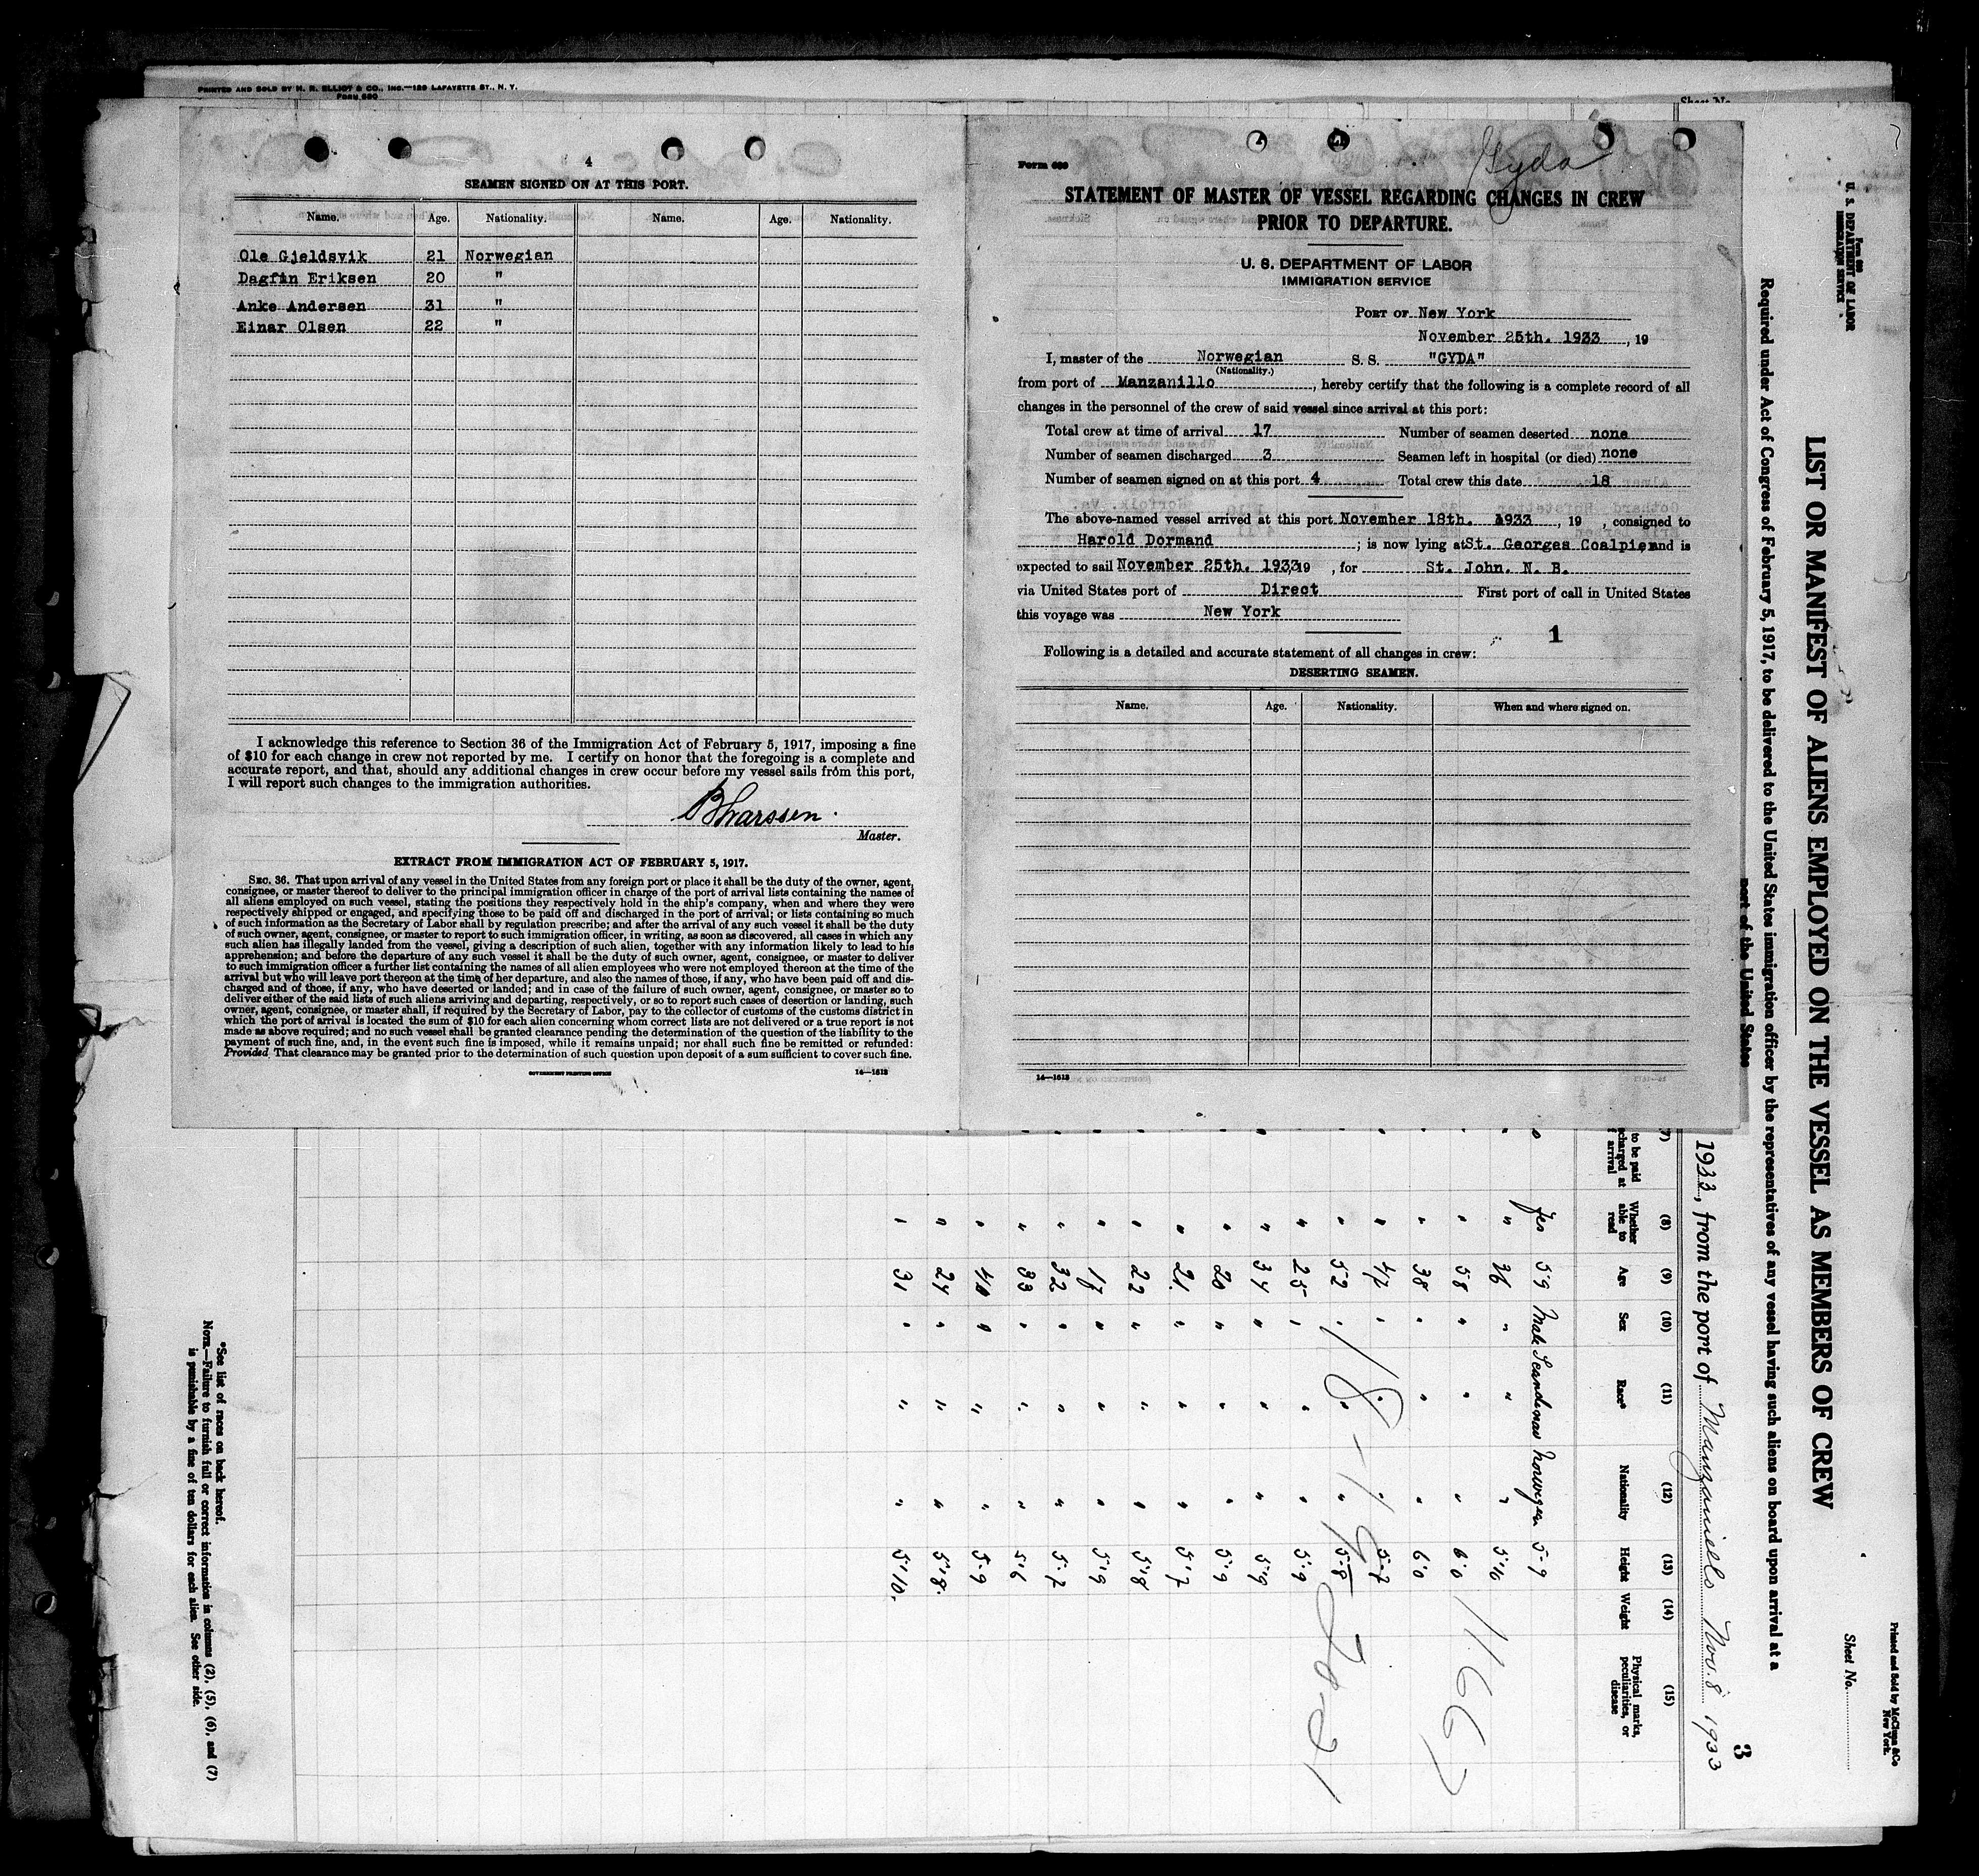 PRINTED AND SOLD BY H. R. ELLIOT & CO., INC.—129 LAFAYETTE ST., N. Y.
Form 680
Sheet No.
4
SEAMEN SIGNED ON AT THIS PORT.
Name. Age. Nationality. Name. Age. Nationality.
Ole Gjeldsvik 21 Norwegian
Dagfin Eriksen 20 "
Anke Andersen 31 "
Einar Olsen 22 "
I acknowledge this reference to Section 36 of the Immigration Act of February 5, 1917, imposing a fine
of $10 for each change in crew not reported by me. I certify on honor that the foregoing is a complete and
accurate report, and that, should any additional changes in crew occur before my vessel sails from this port,
I will report such changes to the immigration authorities.
B Larssen.
Master.
EXTRACT FROM IMMIGRATION ACT OF FEBRUARY 5, 1917.
SEC. 36. That upon arrival of any vessel in the United States from any foreign port or place it shall be the duty of the owner, agent,
consignee, or master thereof to deliver to the principal immigration officer in charge of the port of arrival lists containing the names of
all aliens employed on such vessel, stating the positions they respectively hold in the ship's company, when and where they were
respectively shipped or engaged, and specifying those to be paid off and discharged in the port of arrival; or lists containing so much
of such information as the Secretary of Labor shall by regulation prescribe; and after the arrival of any such vessel it shall be the duty
of such owner, agent, consignee, or master to report to such immigration officer, in writing, as soon as discovered, all cases in which any
such alien has illegally landed from the vessel, giving a description of such alien, together with any information likely to lead to his
apprehension; and before the departure of any such vessel it shall be the duty of such owner, agent, consignee, or master to deliver
to such immigration officer a further list containing the names of all alien employees who were not employed thereon at the time of the
arrival but who will leave port thereon at the time of her departure, and also the names of those, if any, who have been paid off and dis-
charged and of those, if any, who have deserted or landed; and in case of the failure of such owner, agent, consignee, or master so to
deliver either of the said lists of such aliens arriving and departing, respectively, or so to report such cases of desertion or landing, such
owner, agent, consignee, or master shall, if required by the Secretary of Labor, pay to the collector of customs of the customs district in
which the port of arrival is located the sum of $10 for each alien concerning whom correct lists are not delivered or a true report is not
made as above required; and no such vessel shall be granted clearance pending the determination of the question of the liability to the
payment of such fine, and, in the event such fine is imposed, while it remains unpaid; nor shall such fine be remitted or refunded:
Provided That clearance may be granted prior to the determination of such question upon deposit of a sum sufficient to cover such fine.
GOVERNMENT PRINTING OFFICE 14—1613
Form 689
Gyda
STATEMENT OF MASTER OF VESSEL REGARDING CHANGES IN CREW
PRIOR TO DEPARTURE.
U. S. DEPARTMENT OF LABOR
IMMIGRATION SERVICE
PORT OF New York
November 25th. 1933, 19
I, master of the Norwegian S. S. "GYDA"
(Nationality.)
from port of Manzanillo, hereby certify that the following is a complete record of all
changes in the personnel of the crew of said vessel since arrival at this port:
Total crew at time of arrival 17 Number of seamen deserted none
Number of seamen discharged 3 Seamen left in hospital (or died) none
Number of seamen signed on at this port 4 Total crew this date 18
The above-named vessel arrived at this port November 18th. 1933, 19 , consigned to
Harold Dormand ; is now lying at St. Georges Coalpier and is
expected to sail November 25th. 1933, 19 , for St. John. N. B.
via United States port of Direct First port of call in United States
this voyage was New York
1
Following is a detailed and accurate statement of all changes in crew:
DESERTING SEAMEN.
Name. Age. Nationality. When and where signed on.
14—1613
Printed and Sold by McClunn & Co
New York.
Sheet No.
Form 680
U. S. DEPARTMENT OF LABOR
IMMIGRATION SERVICE
LIST OR MANIFEST OF ALIENS EMPLOYED ON THE VESSEL AS MEMBERS OF CREW
Required under Act of Congress of February 5, 1917, to be delivered to the United States immigration officer by the representatives of any vessel having such aliens on board upon arrival at a
port of the United States
3
1933, from the port of Manzanillo Nov. 8 1933
(7) (8) (9) (10) (11) (12) (13) (14) (15)
to be paid
charged at
arrival
Whether able to read Age Sex Race* Nationality Height Weight Physical marks, peculiarities, or disease
Yes 59 Male Scandinav Norwegen 5-9
" 36 " " " 5'10
" 58 " " " 6'0
" 38 " " " 6'0
" 47 " " " 5-7
" 52 " " " 5-8
" 25 " " " 5'9
" 34 " " " 5'9
" 20 " " " 5'9
" 21. " " " 5'7
" 22 " " " 5'8
" 19 " " " 5'9
" 32 " " " 5-7
" 33 " " " 5'6
" 40 " " " 5-9
" 24 " " " 5'8.
" 31 " " " 5'10.
*See list of races on back hereof.
NOTE.—Failure to furnish full or correct information in columns (2), (5), (6), and (7)
is punishable by a fine of ten dollars for each alien. See other side.